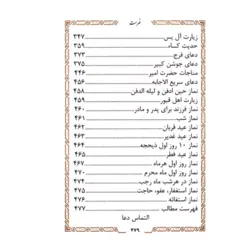 فهرست
زیارت آل یس ۳۴۷
حدیث کساء ۳۵۹
دعای فرج ۳۷۳
دعای جوشن کبیر ۳۷۵
مناجات حضرت امیر ۴۴۶
دعای سریع الاجابه ۴۵۶
نماز حین ادفن و لیلة الدفن ۴۵۸
زیارت اهل قبور ۴۵۹
نماز فرزند برای پدر و مادر ۴۶۰
نماز شب ۴۶۱
نماز عید قربان ۴۶۲
نماز ۱۰ روز اول ذیحجه ۴۶۴
نماز عید فطر ۴۶۵
نماز روز اول هرماه ۴۶۷
نماز روز اول ماه محرم ۴۷۰
نماز در هرشب ماه رجب ۴۷۴
نماز استغفار، عفو، حاجت ۴۷۵
نماز استغاثه ۴۷۶
فهرست مطالب ۴۷۷
التماس دعا
۴۷۹